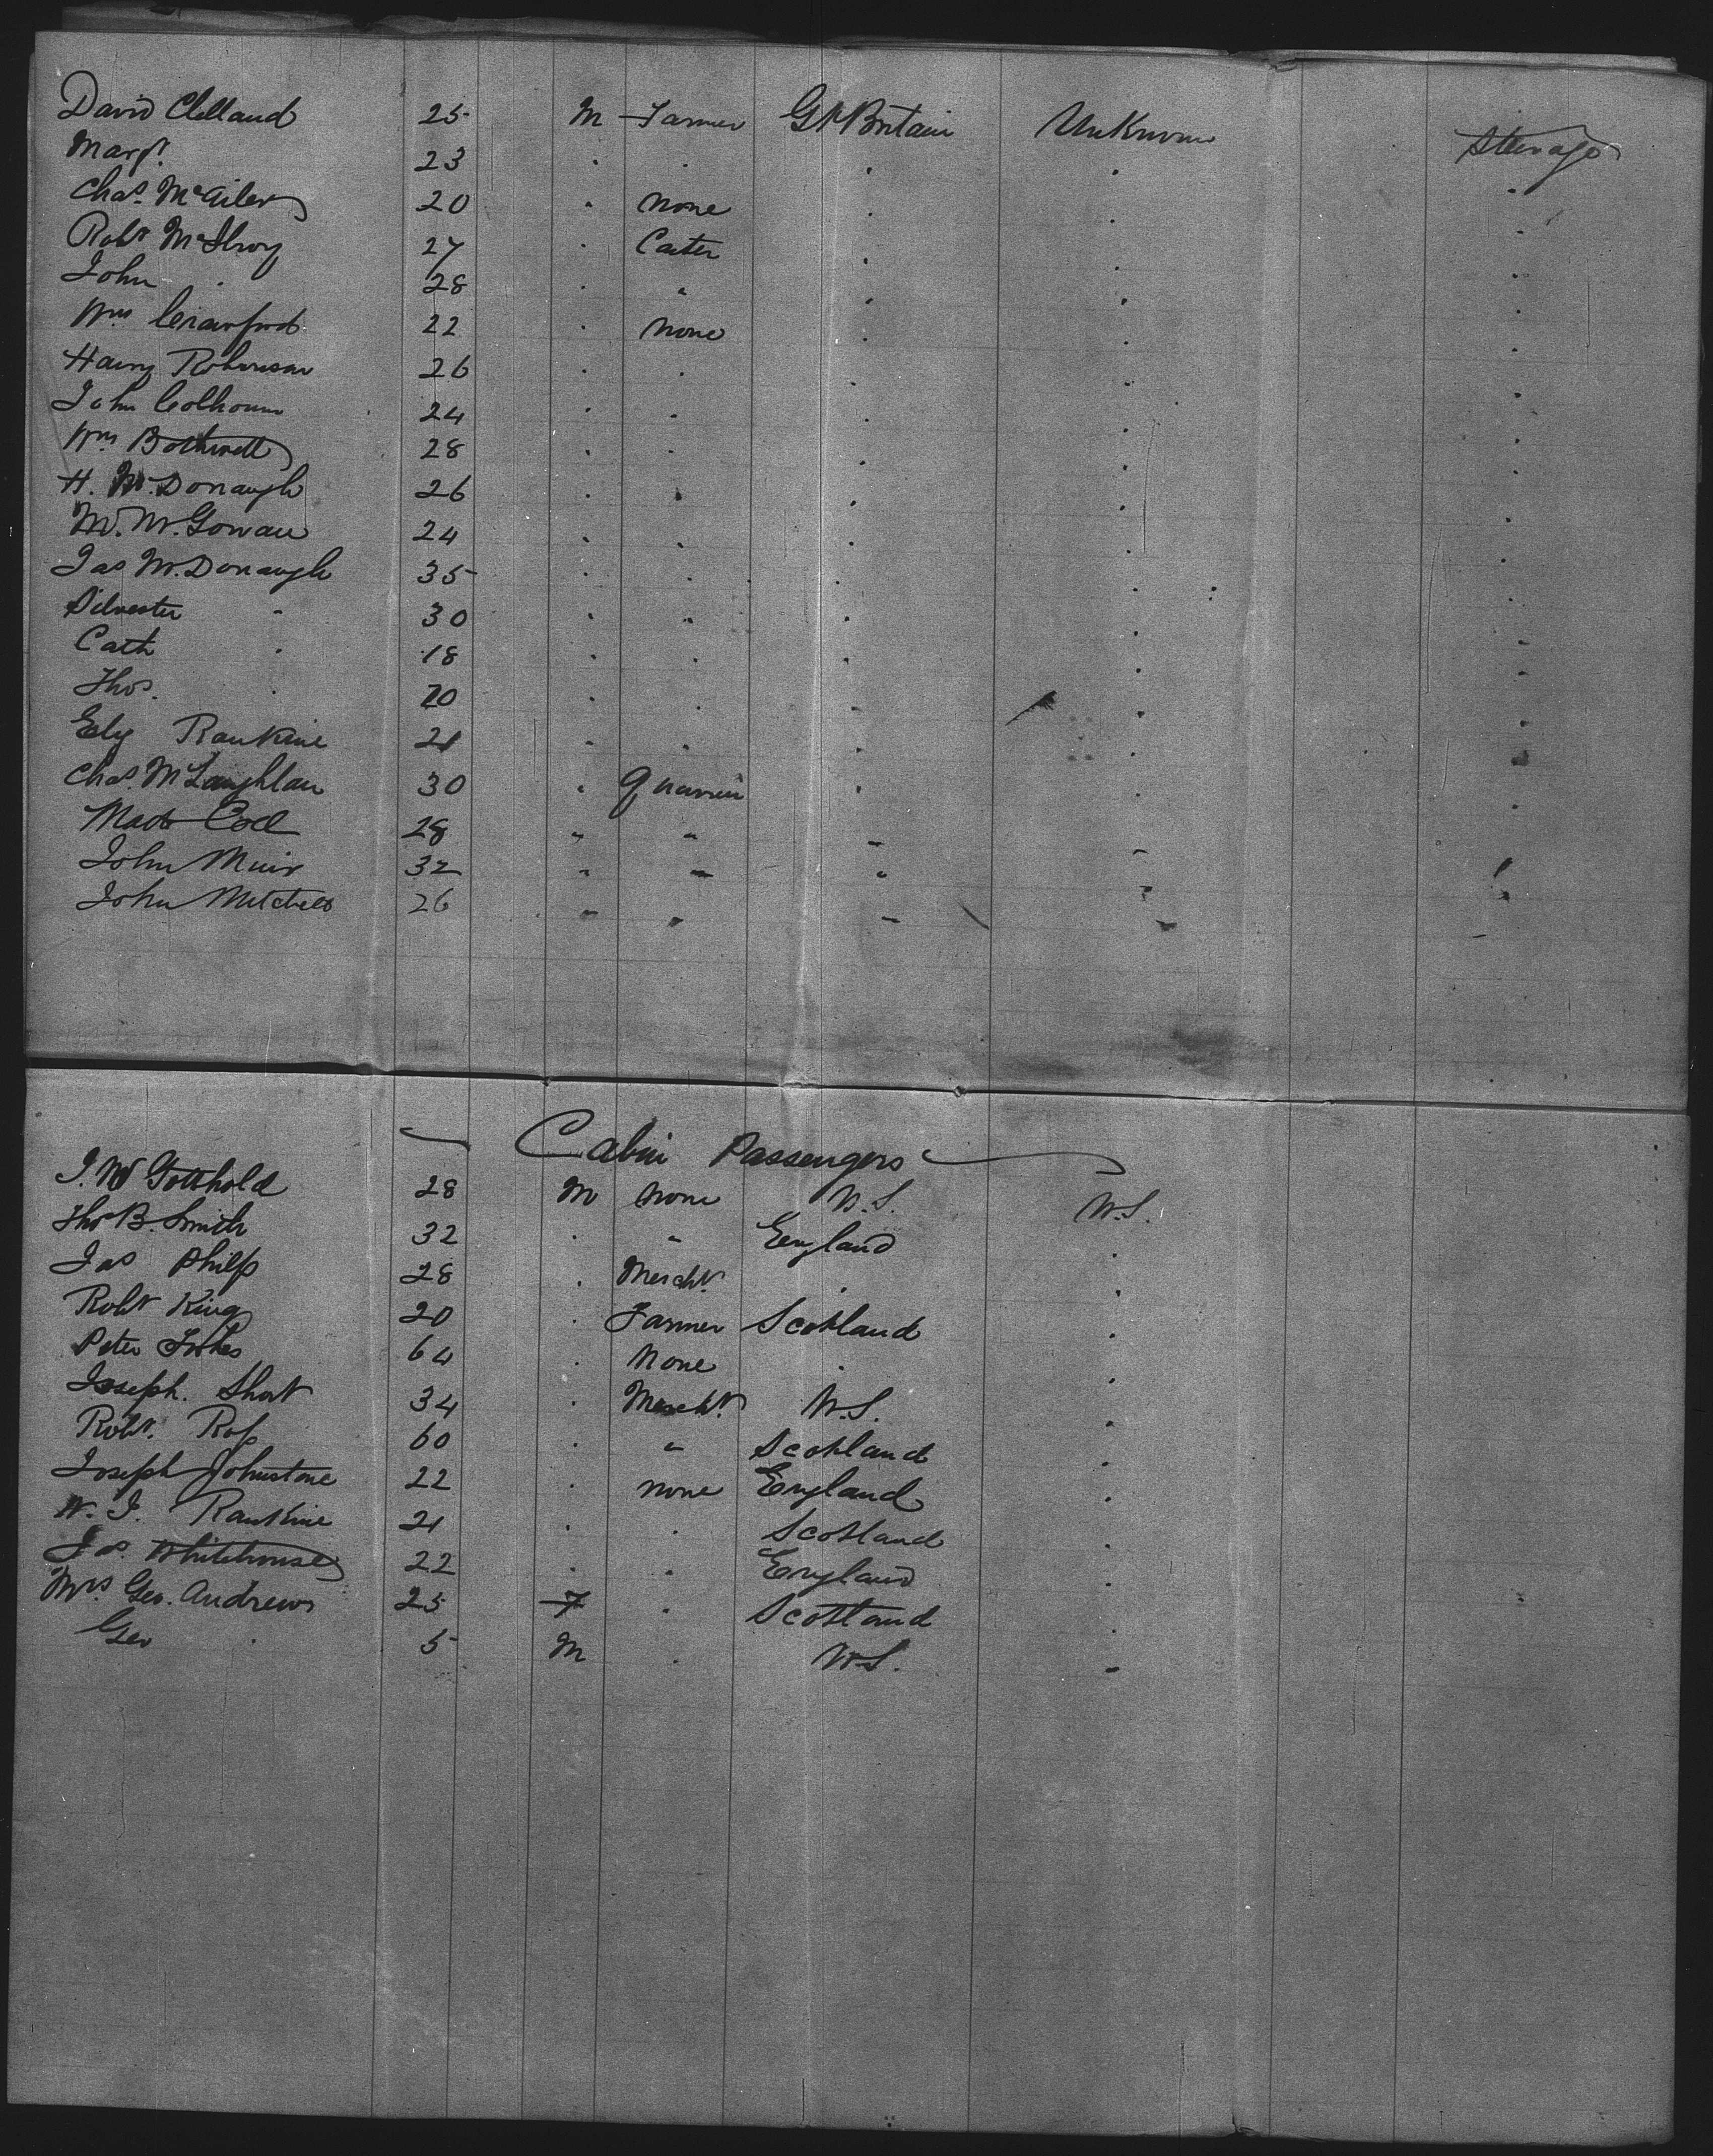 David Clelland 25 M Farmer Gt Britain Unknown Steerage
Margt. 23 " " " " "
Chas. McAiler 20 " none " " "
Robt McIlroy 27 " Carter " " "
John " 28 " " " " "
Wm Crawford 22 " none " " "
Harry Robinson 26 " " " " "
John Colhoun 24 " " " " "
Wm Bothwell 28 " " " " "
H. Mc.Donaugh 26 " " " " "
M. Mc.Gowan 24 " " " " "
Jas Mc.Donaugh 35 " " " " "
Silvester " 30 " " " " "
Cath " 18 " " " " "
Thos. " 20 " " " " "
Eliz Rankine 21 " " " " "
Chas. McLaughlan 30 " Quarrier " " "
28 " " " " "
John Muir 32 " " " " "
John Mitchell 26 " " " "
Cabin Passengers
J. W Gotthold 28 M none U.S. U.S.
Thos B. Smith 32 " " England "
Jas Philp 28 " Mercht. " "
Robt King 20 " Farmer Scotland "
Peter Forbes 64 " None " "
Joseph. Short 34 " Mercht. U.S. "
Robt. Ross 60 " " Scotland "
Joseph Johnstone 22 " none England "
W. J. Rankine 21 " " Scotland "
Jas. Whitehouse 22 " " England "
Mrs. Geo. Andrews 25 F " Scotland "
Geo " 5 M " U.S. "